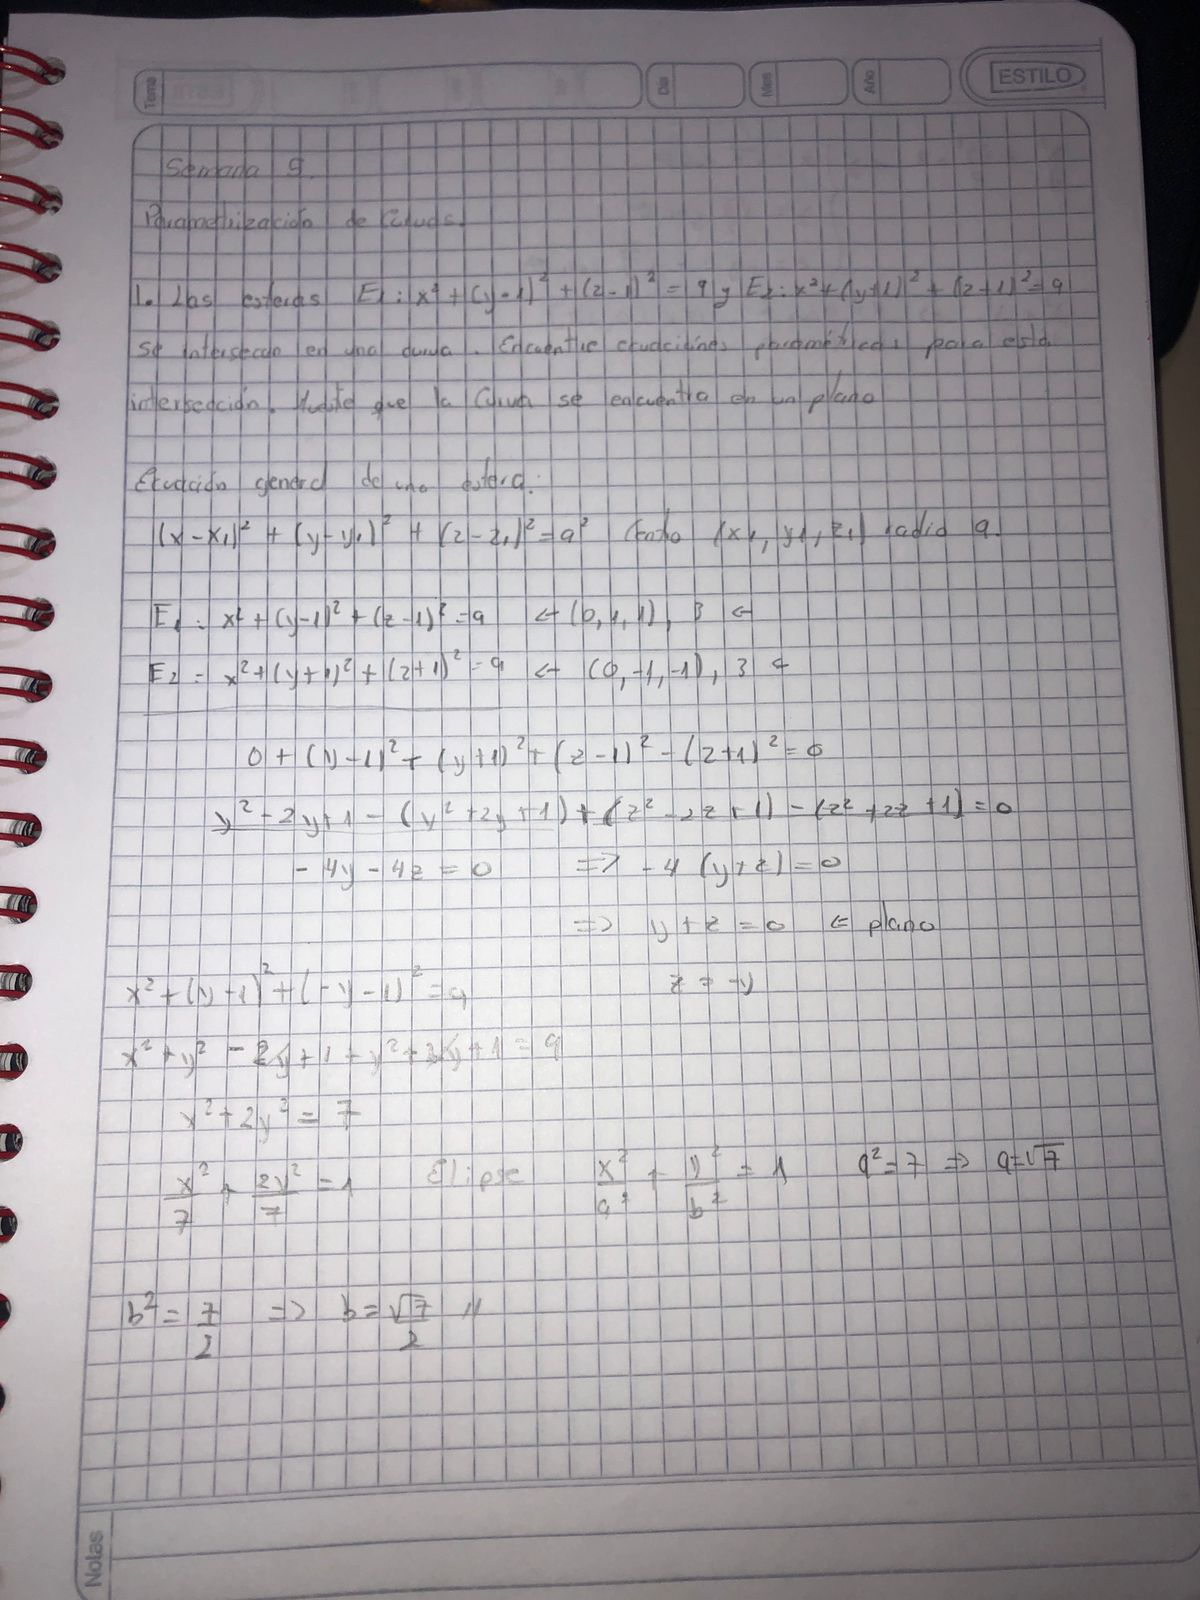 Tema
Día
Mes
Año
ESTILO
Semana 9.
Parametrización de Curvas.
1. Las esferas E1: x² + (y-1)² + (z-1)² = 9 y E2: x² + (y+1)² + (z+1)² = 9
se intersecan en una curva. Encuentre ecuaciones paramétricas para esta
intersección. Muestre que la Curva se encuentra en un plano
Ecuación general de una esfera:
(x-x1)² + (y-y1)² + (z-z1)² = a² Centro (x1, y1, z1) radio a.
E1 = x² + (y-1)² + (z-1)² = 9 ← (0, 1, 1), 3 ←
E2 = x² + (y+1)² + (z+1)² = 9 ← (0, -1, -1), 3 ←
0 + (y-1)² - (y+1)² + (z-1)² - (z+1)² = 0
y² - 2y + 1 - (y² + 2y + 1) + (z² - 2z + 1) - (z² + 2z + 1) = 0
-4y - 4z = 0 => -4 (y+z) = 0
=> y + z = 0 ← plano
x² + (y-1)² + (-y-1)² = 9 z = -y
x² + y² - 2y + 1 + y² + 2y + 1 = 9
x² + 2y² = 7
x²/7 + 2y²/7 = 1 Elipse x²/a² + y²/b² = 1 a² = 7 => a = √7
b² = 7/2 => b = √7/2 //
Notas